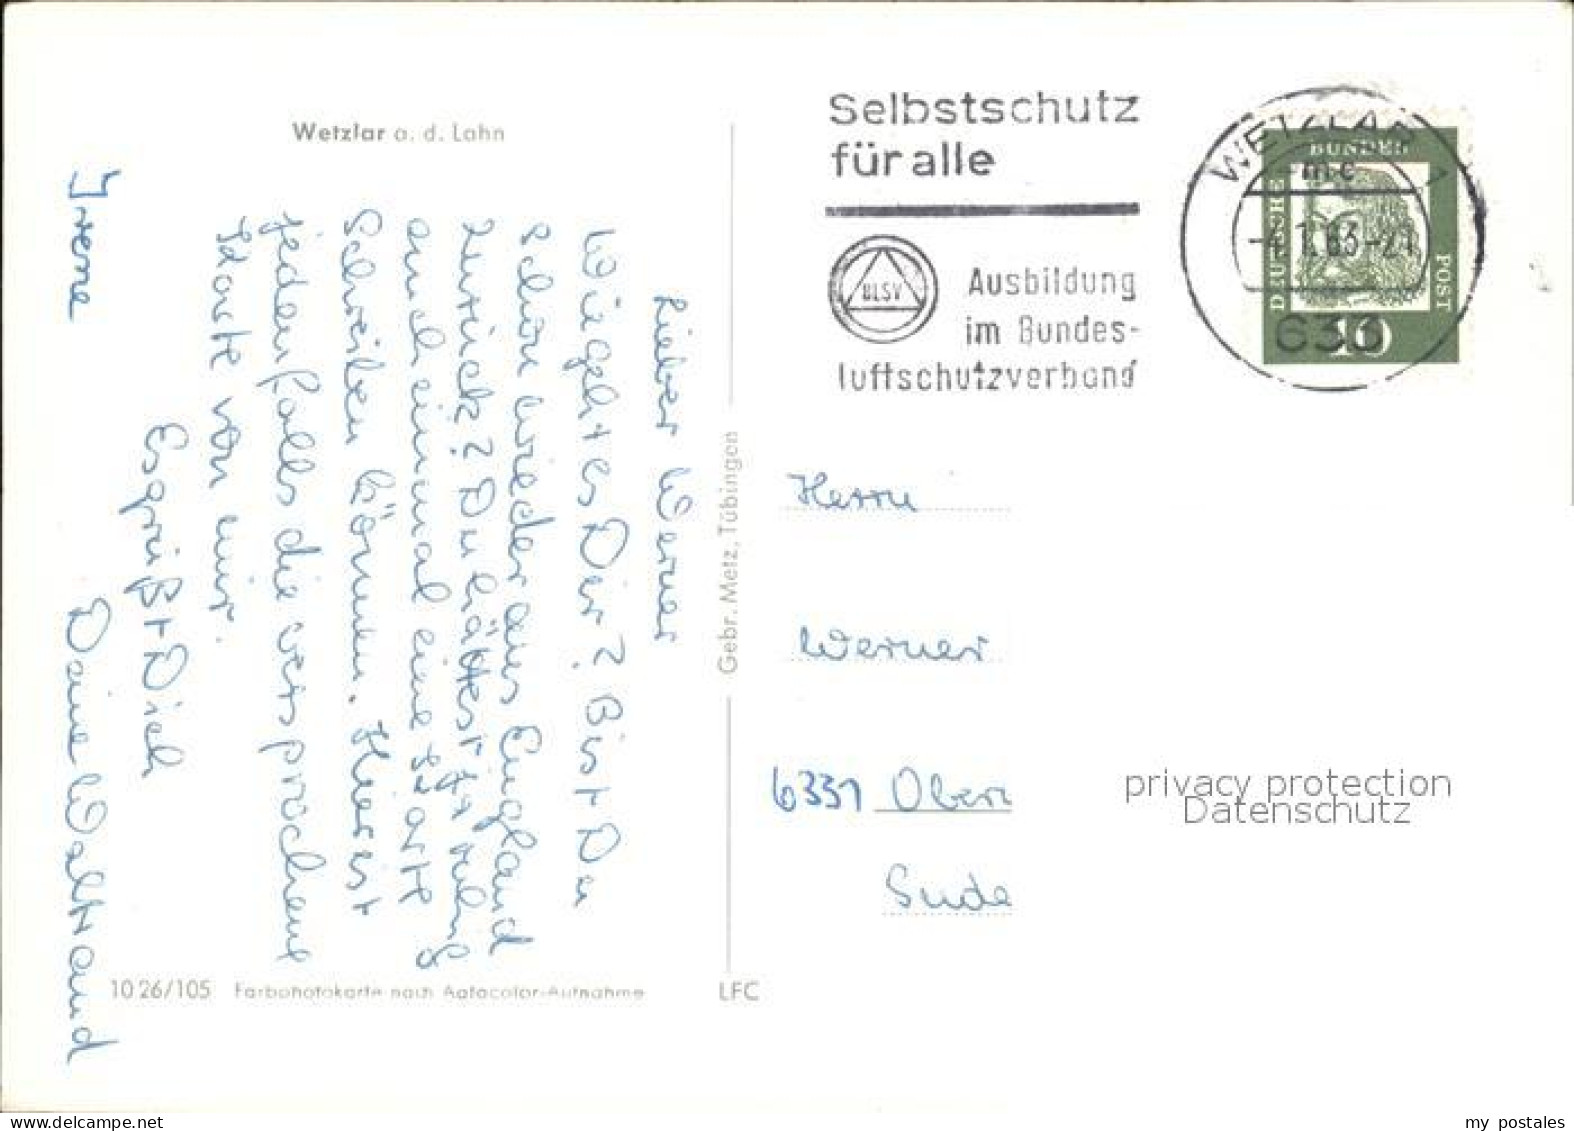 Wetzlar a. d. Lahn
Lieber Werner
Wie geht es Dir? Bist Du
schon wieder aus England
zurück? Du hättest ja ruhig
auch einmal eine Karte
schreiben können. Hier ist
jedenfalls die versprochene
Karte von mir.
Es grüßt Dich
Deine Waltraud
Irene
10 26/105 Farbphotokarte nach Agfacolor-Aufnahme
LFC
Gebr. Metz, Tübingen
Selbstschutz
für alle
BLSV
Ausbildung
im Bundes-
luftschutzverband
WETZLAR 1
mc
-4.1.63-21
633
DEUTSCHE
BUNDES
POST
10
Herrn
Werner
6331 Obern
Sude
privacy protection
Datenschutz
www.delcampe.net
my postales